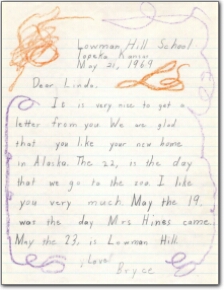 Lowman Hill School
Topeka Kansas
May 21, 1969
Dear Linda,
It is very nice to get a
letter from you. We are glad
that you like your new home
in Alaska. The 22, is the day
that we go to the zoo. I like
you very much. May the 19,
was the day Mrs Hines came.
May the 23, is Lowman Hill
Love
Bryce